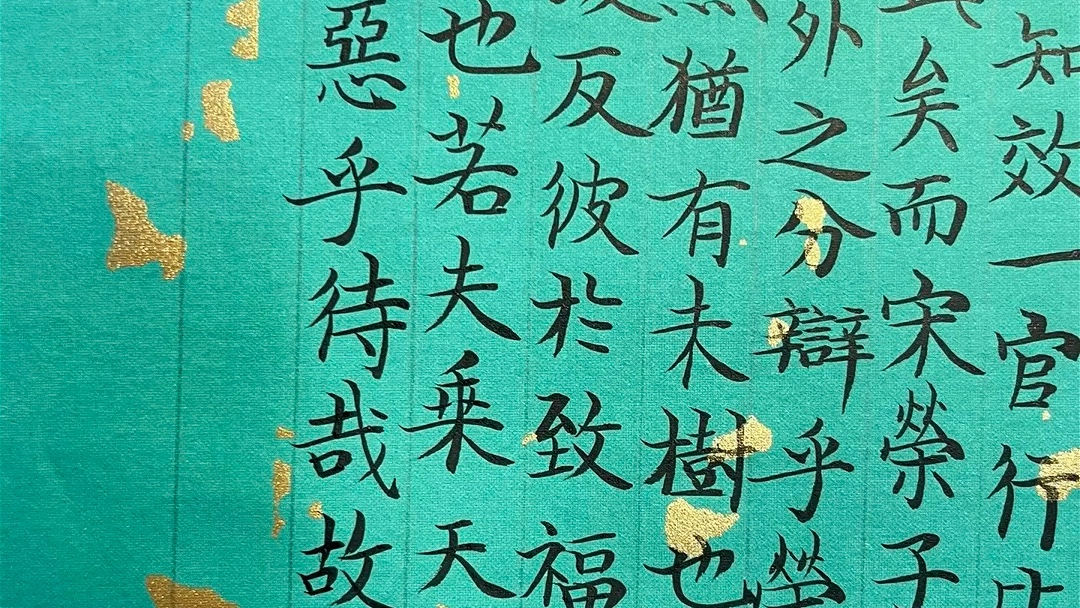 知效一官行
矣而宋榮子
外之分辯乎榮
猶有未樹也
反彼於致福
也若夫乘天
惡乎待哉故